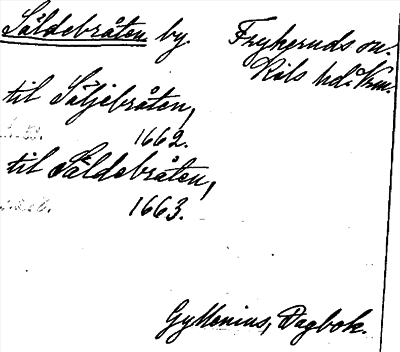 Såldebråten by. Frykeruds sn.
Kils hd. Vrm.
til Säljebråten,
1662.
til Såldebråten,
1663.
Gyllenius, Dagbok.